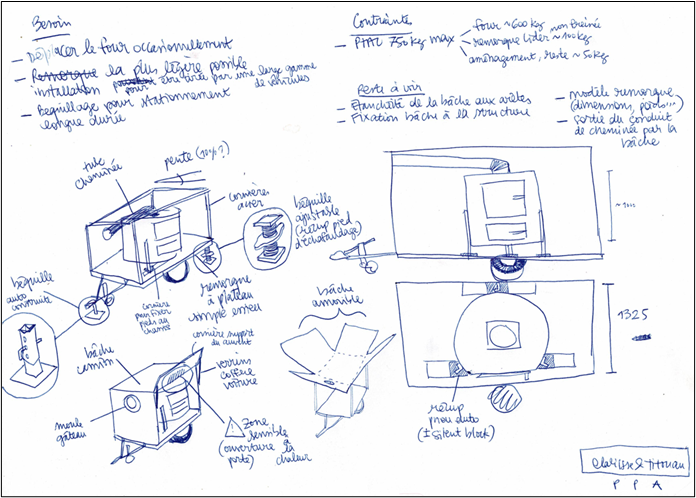 Besoin
- Déplacer le four occasionnellement
- Remorque la plus légère possible
installation pour être tirée par une large gamme
de véhicules
- Béquillage pour stationnement
longue durée
Contrainte
- PTAC 750kg max
four ~600kg
non freinée
remorque lider ~100kg
aménagement, reste ~50kg
Reste à voir
- Etanchéité de la bâche aux arêtes
- Fixation bâche à la structure
- modèle remorque
(dimensions, poids...)
- sortie du conduit
de cheminée par la
bâche
tube
cheminée
pente (10%?)
cornières
acier
béquille
ajustable
(récup pied
d'échafaudage)
béquille
auto
construite
cornière
pour fixer
pieds au
chassis
remorque
à plateau
simple essieu
~1m
bâche
camion
cornière support
du auvent
verrins
coffre
voiture
moule
gâteau
zone
sensible
(ouverture
porte)
à
la
chaleur
bâche
amovible
1325
récup
pneu auto
(± silent block)
Clarisse & Titouan
P P A